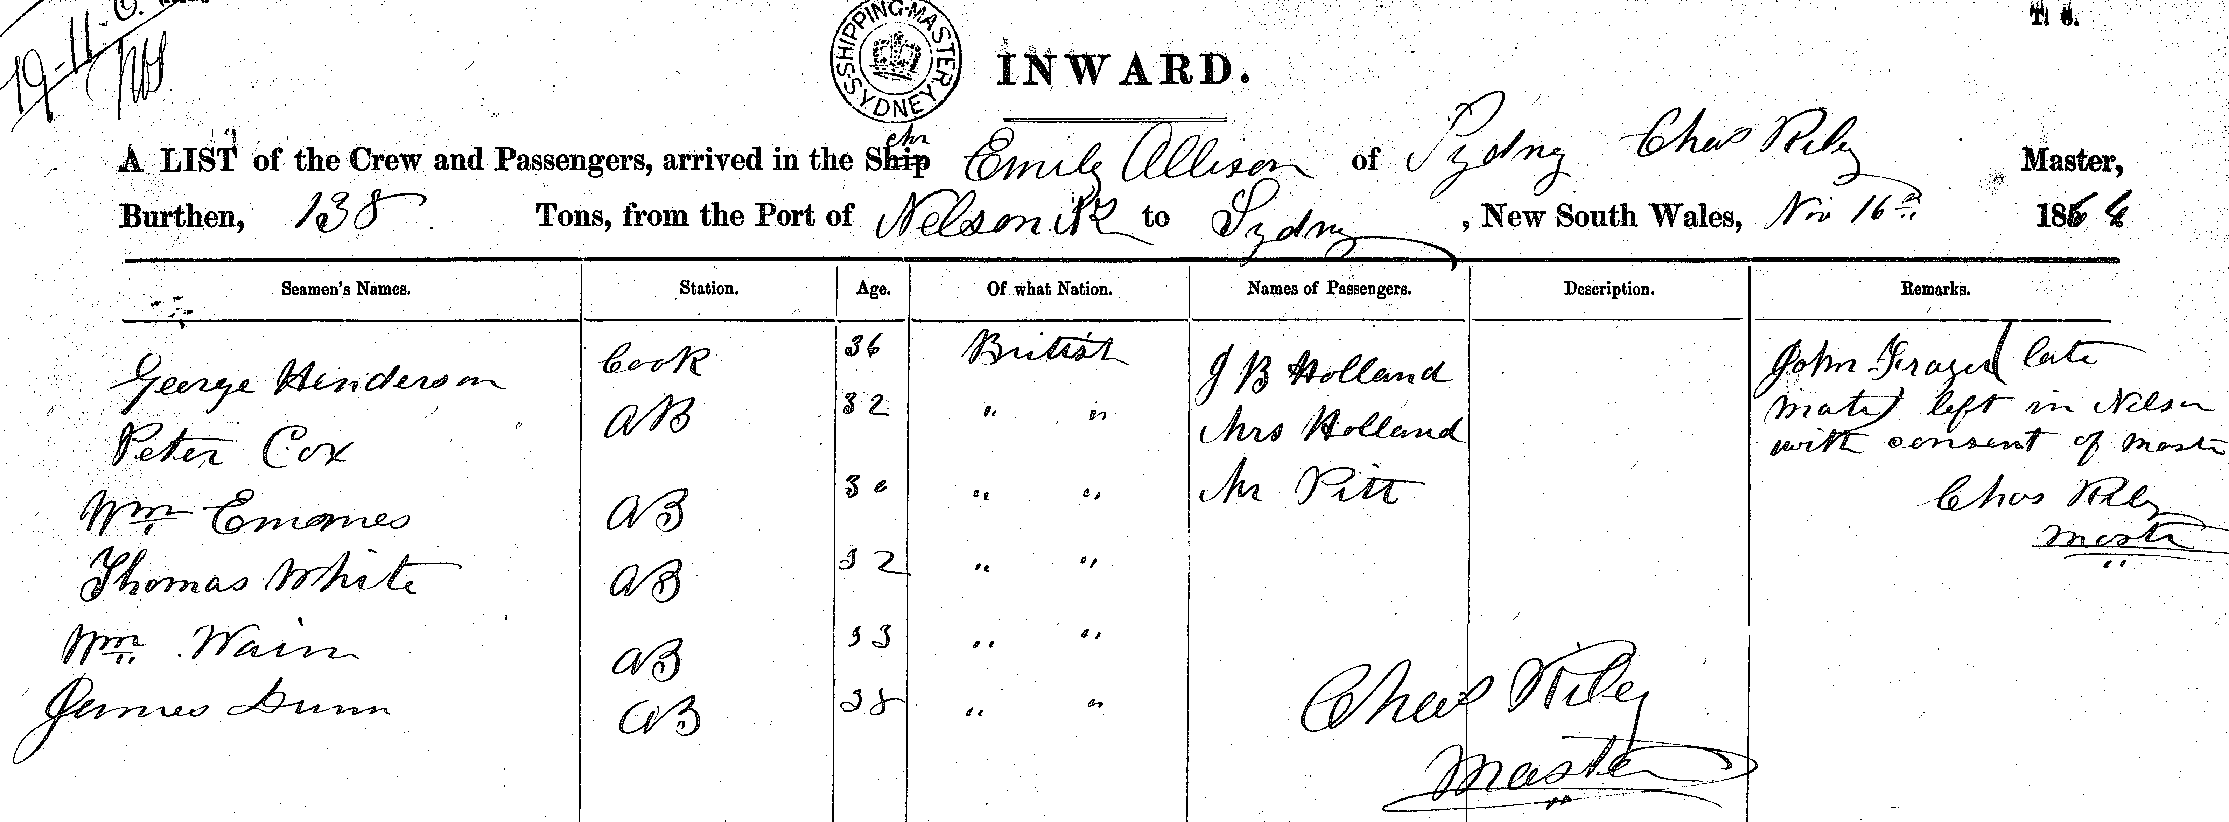 19-11-6
SHIPPING-MASTER
SYDNEY
INWARD.
A LIST of the Crew and Passengers, arrived in the Ship Schr Emily Allison of Sydney Chas Riley Master,
Burthen, 138 Tons, from the Port of Nelson to Sydney, New South Wales, Nov 16 1866
Seamen's Names. Station. Age. Of what Nation. Names of Passengers. Description. Remarks.
George Henderson Cook 36 British J B Holland John Frazer late
Peter Cox AB 32 " " Mrs Holland mate left in Nelson
with consent of Master
Wm Emomes AB 30 " " Mr Pitt Chas Riley
Master
Thomas White AB 32 " "
Wm Wain AB 33 " "
James Dunn AB 38 " " Chas Riley
Master